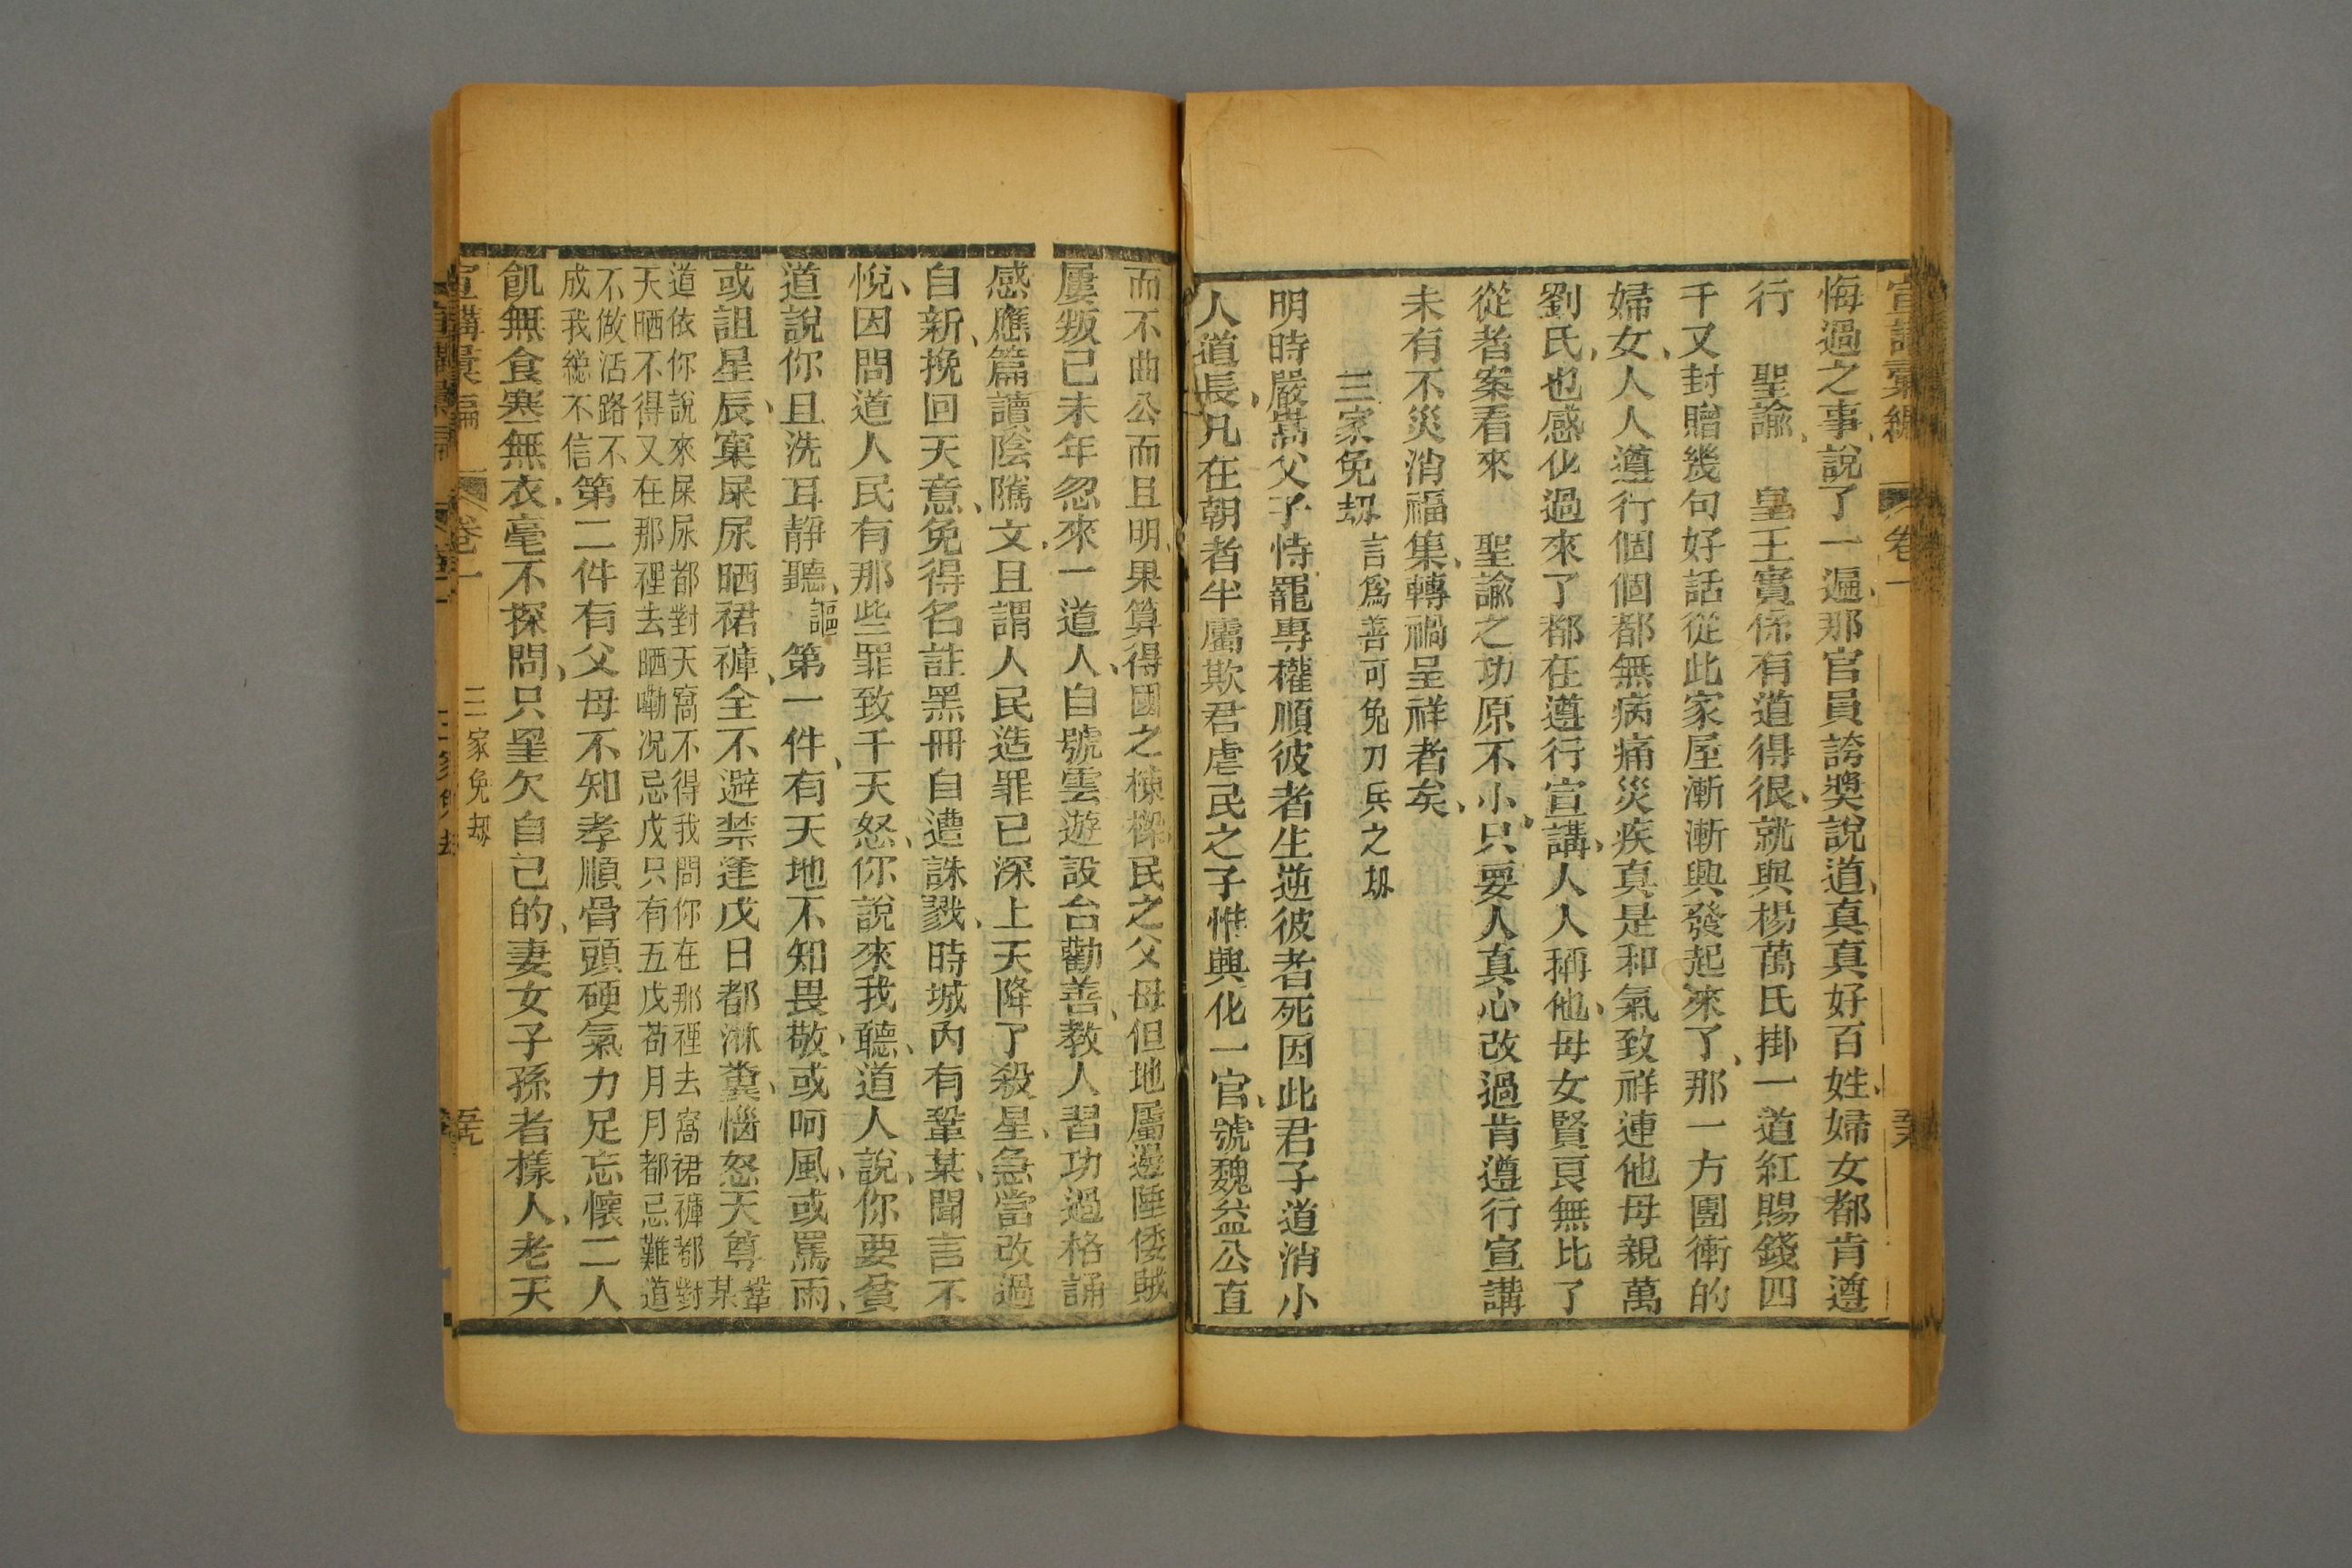 宣講彙編 卷一
悔過之事、說了一遍、那官員誇獎說道、真真好百姓、婦女都肯遵
行 聖諭、 皇王實係有道得很、就與楊萬氏掛一道紅賜錢四
千又封贈幾句好話從此家屋漸漸興發起來了、那一方團衝的
婦女、人人遵行個個都無病痛災疾真是和氣致祥連他母親萬
劉氏、也感化過來了都在遵行宣講、人人稱他、母女賢良無比了
從者案看來 聖諭之功原不小、只要人真心改過肯遵行宣講
未有不災消福集、轉禍呈祥者矣、
三家免刼 言爲善可免刀兵之刼
明時嚴嵩父子恃寵專權順彼者生逆彼者死因此君子道消小
人道長、凡在朝者半屬欺君虐民之子惟興化一官、號魏益公直
而不曲公而且明、果算得國之棟樑民之父母但地屬邊陲倭賊
屢叛己未年忽來一道人、自號雲遊設台勸善、教人習功過格誦
感應篇讀陰隲文、且謂人民造罪已深上天降了殺星、急當改過
自新、挽回天意、免得名註黑冊自遭誅戮、時城內有鞏某、聞言不
悅、因問道人民有那些罪致干天怒、你說來我聽、道人說、你要貧
道說你且洗耳靜聽、謳第一件、有天地不知畏敬、或呵風、或罵雨、
或詛星辰、窠屎尿晒裙褲、全不避禁逢戊日都淋糞、惱怒天尊鞏某
道依你說來屎尿都對天窩不得我問你在那裡去窩裙褲都對
天晒不得又在那裡去晒嘞况忌戊只有五戊苟月月都忌難道
不做活路不
成我總不信第二件有父母不知孝順骨頭硬氣力足忘懷二人
飢無食寒無衣、毫不探問、只量欠自己的、妻女子孫者樣人、老天
宣講彙編 卷一 三家免刼